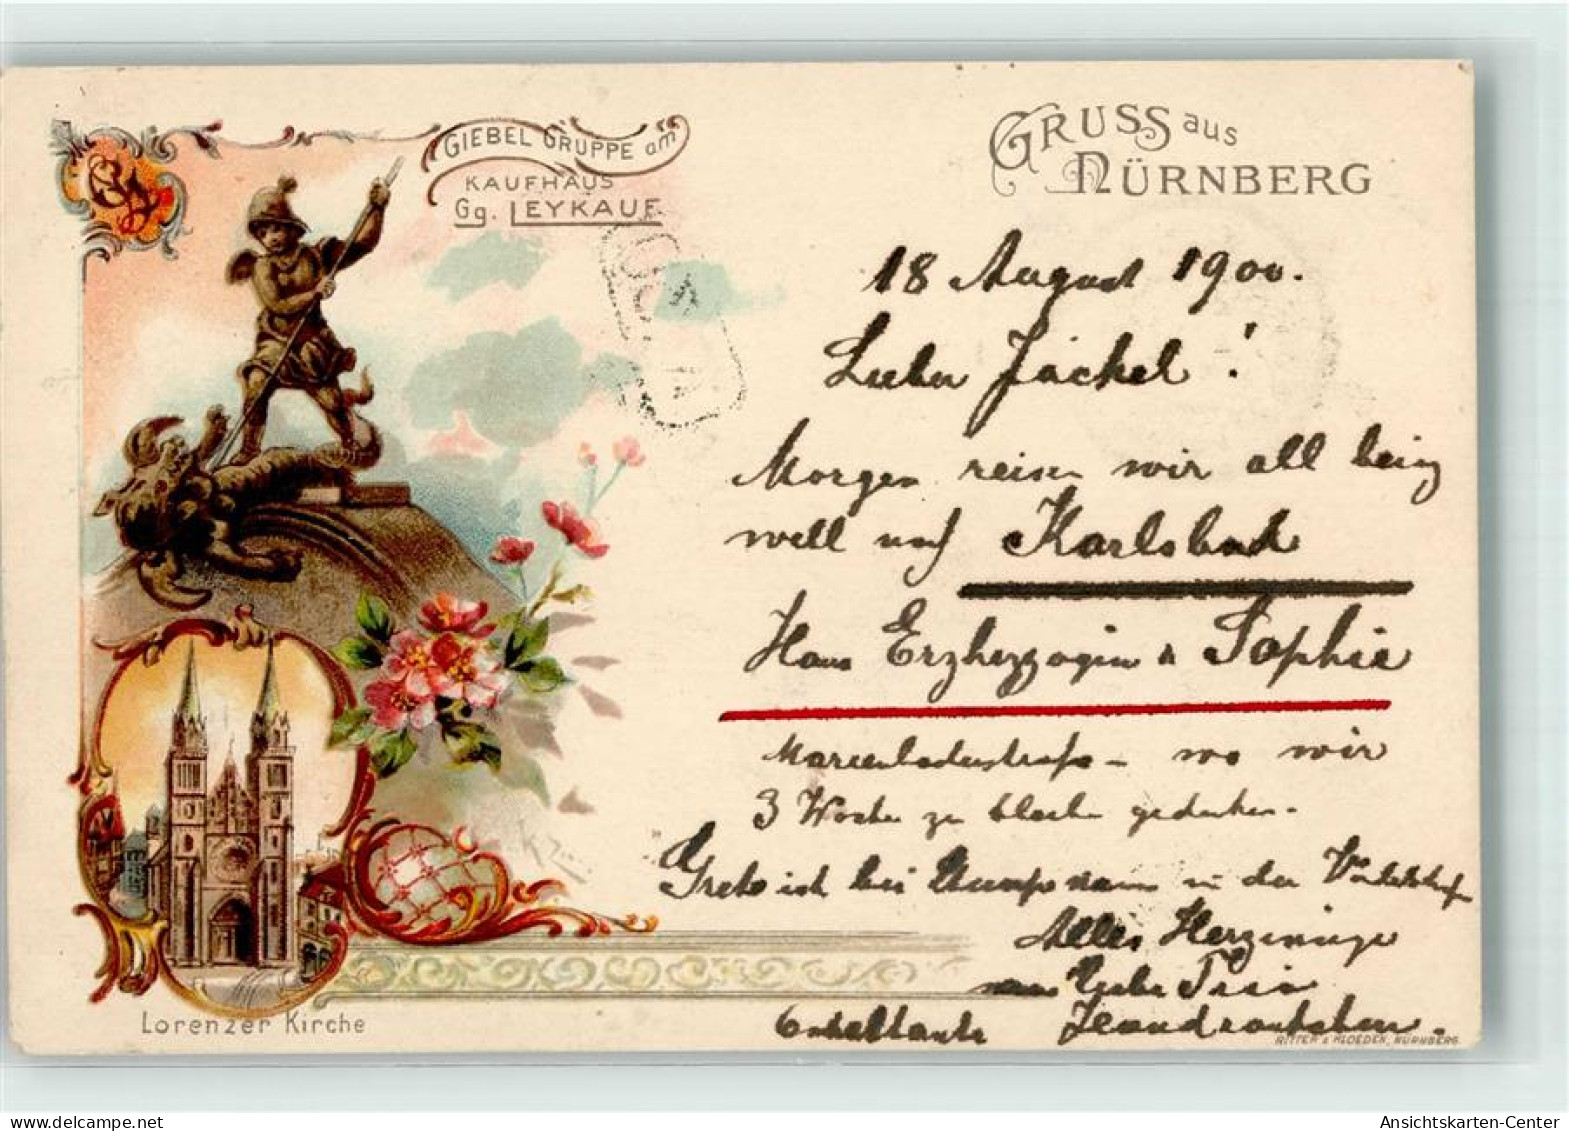 GIEBEL GRUPPE am
KAUFHAUS
Gg. LEYKAUF
GRUSS aus
NÜRNBERG
18 August 1900.
Lieber Jäckel!
Morgen reisen wir all
nach Karlsbad
Haus Erzherzogin Sophie
Marienbaderstrasse - wo wir
3 Wochen zu bleiben gedenken.
Grete ist bei in der
Alles Herzinnige
Lorenzer Kirche
RITTER & KLOEDEN, NÜRNBERG
Ansichtskarten-Center